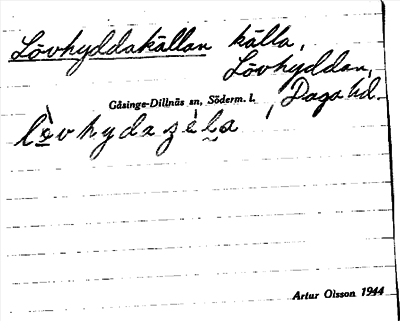 Lövhyddakällan källa,
Lövhyddan,
Gåsinge-Dillnäs sn, Söderm. l. , Daga hd.
Artur Olsson 1944